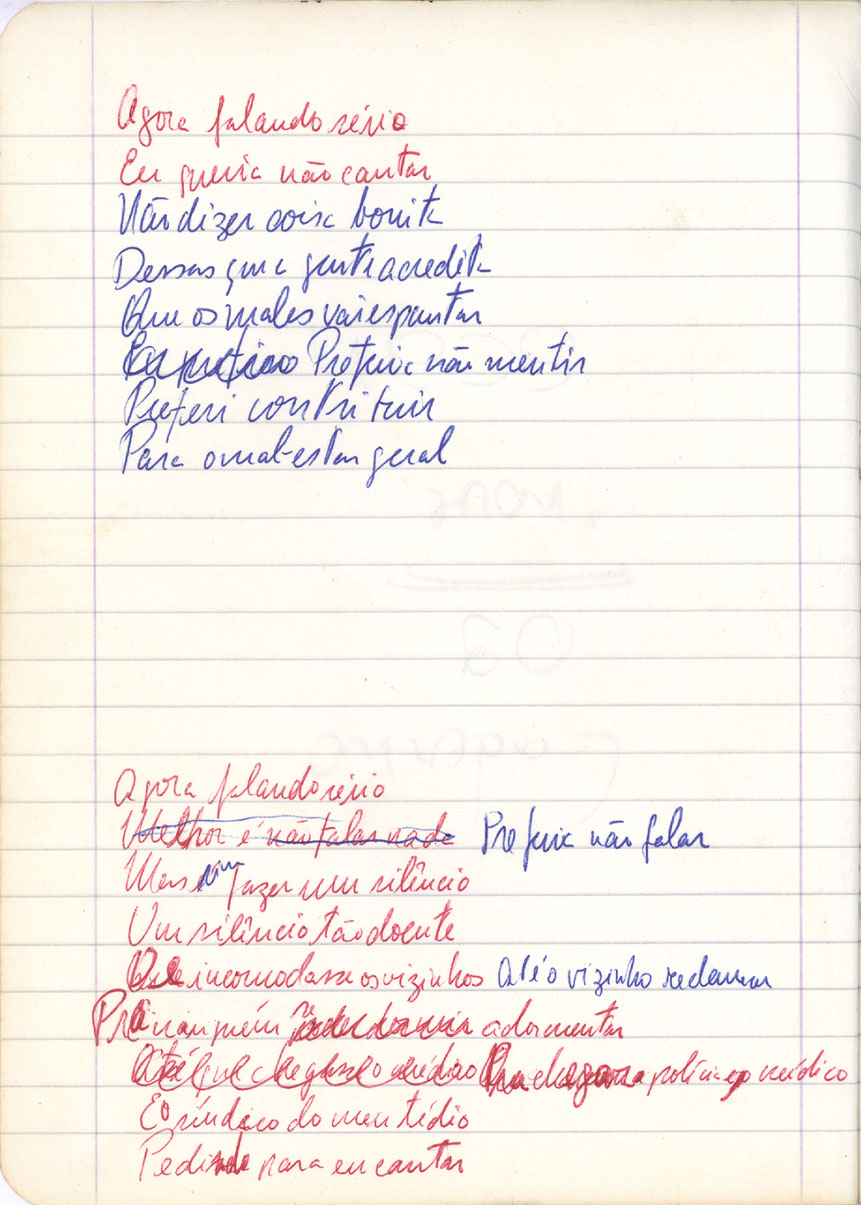 Agora falando sério
Eu queria não cantar
Não dizer coisa bonita
Dessas que a gente acredita
Que os males vai espantar
Preferia não mentir
Preferi contribuir
Para o mal-estar geral
Agora falando sério
Melhor é não falar nada Preferia não falar
Mas sim fazer um silêncio
Um silêncio tão doente
Que incomodasse os vizinhos Até o vizinho reclamar
Pra ninguém adormentar
Até que chegasse o médico Pra chegar a polícia e o médico
E o síndico do meu tédio
Pedindo para eu cantar